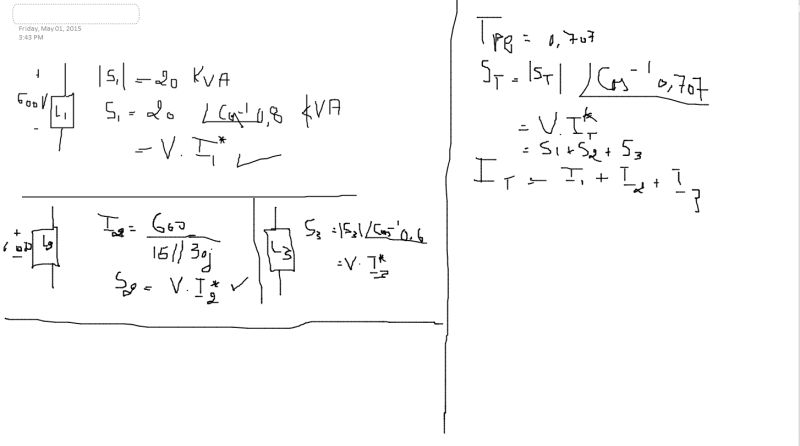 Friday, May 01, 2015
5:43 PM
|S₁| = 20 KVA
+
600V
-
L₁
S₁ = 20 ∠Cos⁻¹0,8 KVA
= V. I₁* ✓
+
-
L₂
I₂ = 600 / 15//30j
S₂ = V. I₂* ✓
L3
S₃ = |S₃| ∠Cos⁻¹0.6
= V. I₃*
= 0,707
S_T = |S_T| ∠Cos⁻¹0,707
= V. I_T*
= S₁ + S₂ + S₃
I_T = I₁ + I₂ + I₃